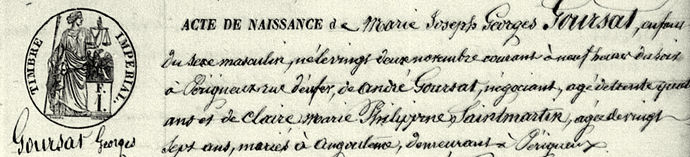 ACTE DE NAISSANCE de Marie Joseph Georges Goursat, enfant
du sexe masculin, né le vingt deux novembre courant à neuf heures du soir
à Périgueux rue d'enfer, de André Goursat, négociant, agé de trente quatre
ans et de Claire Marie Philippine Saintmartin, agée de vingt
sept ans, mariés à Angoulême, demeurant à Périgueux.
TIMBRE IMPÉRIAL
F.
1.
Goursat Georges